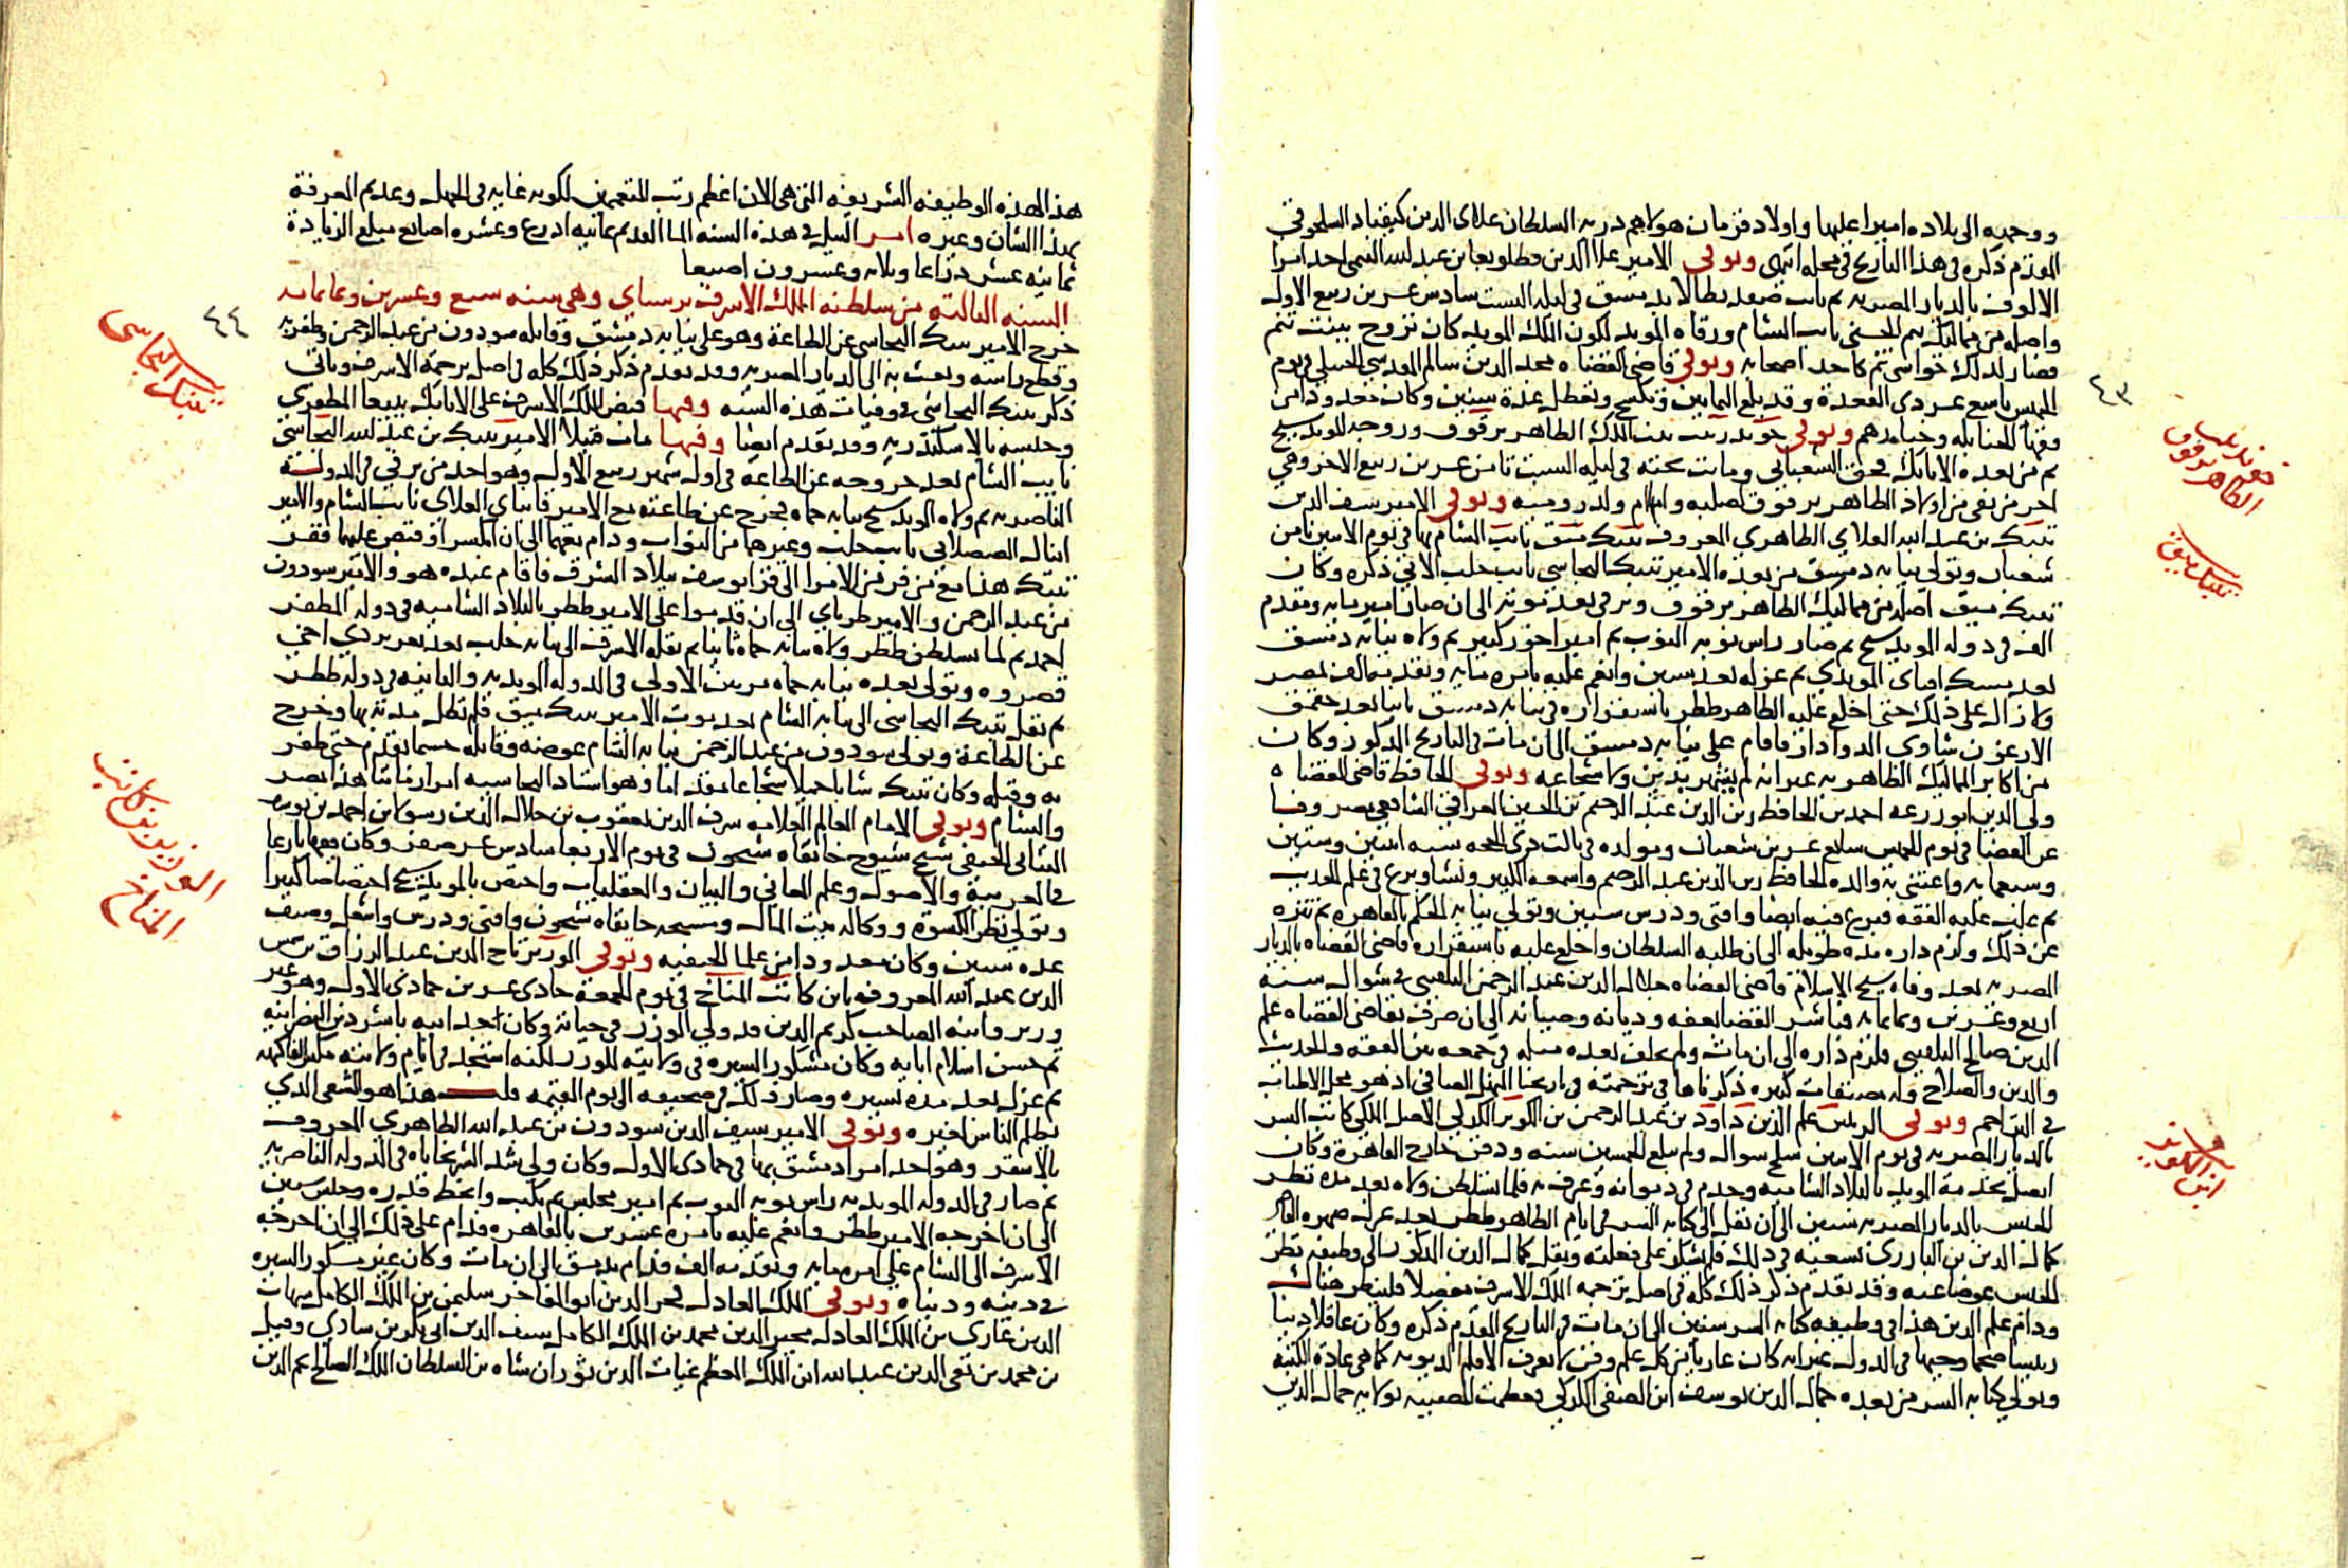 ووجهه الى بلاده اميرا عليها واولاد قرمان هولاهم ذريه السلطان علاى الدين كيقباد السلجوقى
المقدم ذكره فى هذا التاريخ فى محله انتهى وتوفى الامير علا الدين قطلوبغا بن عبد الله التنمى احد امرا
الالوف بالديار المصريه ثم نايب صفد بطالا بدمشق فى ليله السبت سادس عشرين ربيع الاول
واصله من مماليك تنم الحسنى نايب الشام ورقاه المويد لكون الملك المويد كان تزوج ببنت تنم
فصار لذلك حواشى تنم كاحد اصحابه وتوفى قاضى القضاه مجد الدين سالم المقدسى الحنبلى فى يوم
الخميس تاسع عشر ذى القعدة وقد بلغ الثمانين وتكسح وتعطل عدة سنين وكان معدودا من
فقها الحنابله وخيارهم وتوفى خوند زينب بنت الملك الظاهر برقوق وزوجه المويد شيخ
ثم من بعده الاتابك قجق الشعبانى وماتت تحته فى ليله السبت ثامن عشرين ربيع الاخر وهى
اخر من بقى من اولاد الظاهر برقوق لصلبه وامها ام ولد روميه وتوفى الامير سيف الدين
تنبك بن عبد الله العلاى الظاهرى المعروف تنبك ميق نايب الشام بها فى يوم الاثنين ثامن
شعبان وتولى نيابه دمشق من بعده الامير تنبك البجاسى نايب حلب الاتى ذكره وكان
تنبك ميق اصله من مماليك الظاهر برقوق وترقى بعد موته الى ان صار امير مايه ومقدم
الف فى دوله المويد شيخ ثم صار راس نوبه النوب ثم امير اخور كبير ثم ولاه نيابه دمشق
بعد مسك اقباى المويدى ثم عزله بعد سنين وانعم عليه بامره مايه وتقدمه الف بمصر
ولازال على ذلك حتى اخلع عليه الظاهر ططر باستقراره فى نيابه دمشق ثانيا بعد جقمق
الارغون شاوى الدوادار فاقام على نيابه دمشق الى ان مات فى التاريخ المذكور وكان
من اكابر المماليك الظاهريه غير انه لم يشهر بدين ولا شجاعه وتوفى الحافظ قاضى القضاه
ولى الدين ابو زرعه احمد بن الحافظ زين الدين عبد الرحيم بن الحسين العراقى الشافعى مصروفا
عن القضا فى يوم الخميس سابع عشرين شعبان ومولده فى ثالث ذى الحجه سنه اثنين وستين
وسبعمايه واعتنى به والده الحافظ زين الدين عبد الرحيم واسمعه الكثير ونشا وبرع فى علم الحديث
ثم غلب عليه الفقه فبرع فيه ايضا وافتى ودرس سنين وتولى نيابه الحكم بالقاهره ثم تنزه
عن ذلك ولزم داره مده طويله الى ان طلبه السلطان واخلع عليه باستقراره قاضى القضاه بالديار
المصريه بعد وفاه شيخ الاسلام قاضى القضاه جلال الدين عبد الرحمن البلقينى فى شوال سنة
اربع وعشرين وثمانمايه فباشر القضا بعفه وديانه وصيانه الى ان صرف بقاضى القضاه علم
الدين صالح البلقينى فلزم داره الى ان مات ولم يخلف بعده مثله فى جمعه بين الفقه والحديث
والدين والصلاح وله مصنفات كثيره ذكرناها فى ترجمته فى تاريخنا المنهل الصافى اذ هو محل الاطناب
فى التراجم وتوفى الريس علم الدين داود بن عبد الرحمن بن الكويز الكركى الاصل الملكى كاتب السر
بالديار المصريه فى يوم الاثنين سلخ شوال ولم يبلغ الخمسين سنه ودفن خارج القاهرة وكان
اتصل بخدمة المويد بالبلاد الشاميه وخدم فى ديوانه وعرف به فلما تسلطن ولاه بعد مدة نظر
الجيش بالديار المصريه سنين الى ان نقل الى كتابه السر فى ايام الظاهر ططر بعد عزل صهره القاضى
كمال الدين بن البارزى بسعيه فى ذلك فلم يشكر على فعلته ونقل كمال الدين المذكور الى وظيفه نظر
الجيش عوضا عنه وقد تقدم ذكر ذلك كله فى اصل ترجمه الملك الاشرف مفصلا فلينظر هناك
ودام علم الدين هذا فى وظيفه كتابه السر سنين الى ان مات فى التاريخ المقدم ذكره وكان عاقلا دينا
ريسا ضخما وجيها فى الدول غير انه كان عاريا من كل علم وفن لا يعرف الا قلم الديونه كما هى عادة الكتبة
وتولى كتابه السر من بعده جمال الدين يوسف ابن الصفى الكركى فعظمت المصيبه بولايه جمال الدين
٤٣
خوند زينب
الظاهر برقوق
تنبك ميق
ابن الكويز
هذا لهذه الوظيفه الشريفه التى هى الان اعظم رتب المتعممين لكونه غايه فى الجهل وعديم المعرفة
بهذا الشان وغيره امر النيل فى هذه السنه الما القديم ثمانيه اذرع وعشره اصابع مبلغ الزيادة
ثمانيه عشر ذراعا وثلاثه وعشرون اصبعا
السنه الثالثه من سلطنه الملك الاشرف برسباى وهى سنه سبع وعشرين وثمانمايه
خرج الامير تنبك البجاسى عن الطاعة وهو على نيابه دمشق وقاتله سودون من عبد الرحمن وظفر به
وقطع راسه وبعث به الى الديار المصريه وقد تقدم ذكر ذلك كله فى اصل ترجمة الاشرف وياتى
ذكر تنبك البجاسى فى وفيات هذه السنه وفيها قبض الملك الاشرف على الاتابك بيبغا المظفرى
وحبسه بالاسكندريه وقد تقدم ايضا وفيها مات قتيلا الامير تنبك بن عبد الله البجاسى
نايب الشام بعد خروجه عن الطاعة فى اول شهر ربيع الاول وهو احد من ترقى فى الدولة
الناصريه ثم ولاه المويد شيخ نيابه حماه فخرج عن طاعته مع الامير قانباى العلاى نايب الشام والامير
اينال الصصلانى نايب حلب وغيرهما من النواب ودام معهما الى ان انكسرا وقبض عليهما ففر
تنبك هذا مع من فر من الامرا الى قرا يوسف ببلاد الشرق فاقام عنده هو والامير سودون
من عبد الرحمن والامير طرباى الى ان قدموا على الامير ططر بالبلاد الشاميه فى دوله المظفر
احمد ثم لما تسلطن ططر ولاه نيابه حماه ثانيا ثم نقله الاشرف الى نيابه حلب بعد تغرى بردى اخى
قصروه وتولى بعده نيابه حماه مرتين الاولى فى الدوله المويديه والثانيه فى دوله ططر
ثم نقل تنبك البجاسى الى نيابه الشام بعد موت الامير تنبك ميق فلم تطل مدته بها وخرج
عن الطاعة وتولى سودون من عبد الرحمن نيابه الشام عوضه وقاتله حسبما تقدم حتى ظفر
به وقتله وكان تنبك شابا جميلا شجاعا مقداما وهو استاد البجاسيه امرا زماننا هذا بمصر
والشام وتوفى الامام العالم العلامه شرف الدين يعقوب بن جلال الدين رسولا بن احمد بن يوسف
التبانى الحنفى شيخ شيوخ خانقاه شيخون فى يوم الاربعا سادس عشر صفر وكان فقيها بارعا
فى العربية والاصول وعلم المعانى والبيان والعقليات واختص بالمويد شيخ اختصاصا كبيرا
وتولى نظر الكسوة ووكاله بيت المال ومشيخه خانقاه شيخون وافتى ودرس واشغل وصنف
عدة سنين وكان معدودا من علما الحنفيه وتوفى الوزير تاج الدين عبد الرزاق بن شمس
الدين عبد الله المعروف بابن كاتب المناخ فى يوم الجمعة حادى عشرين جمادى الاولى وهو غير
وزير وابنه الصاحب كريم الدين قد ولى الوزر فى حياته وكان احد ابيه باشر دين النصرانيه
ثم حسن اسلام ابايه وكان مشكور السيره فى ولايته للوزر لكنه استجد فى ايام ولايته مكس الفاكهه
ثم عزل بعد مده يسيره وصار ذلك فى صحيفته الى يوم القيمه قلت هذا هو الشقى الذى
يظلم الناس لغيره وتوفى الامير سيف الدين سودون بن عبد الله الظاهرى المعروف
بالاشقر وهو احد امرا دمشق بها فى جمادى الاولى وكان ولى شد الشربخاناه فى الدوله الناصريه
ثم صار فى الدوله المويديه راس نوبه النوب ثم امير مجلس ثم نكب وانحط قدره وحبس سنين
الى ان اخرجه الامير ططر وانعم عليه بامره عشرين بالقاهره فدام على ذلك الى ان اخرجه
الاشرف الى الشام على امره مايه وتقدمه الف فدام بدمشق الى ان مات وكان غير مشكور السيره
فى دينه ودنياه وتوفى الملك العادل فخر الدين ابو المفاخر سليمن بن الملك الكامل شهاب
الدين غازى بن الملك العادل مجير الدين محمد بن الملك الكامل سيف الدين ابى بكر بن شادى وقيل
بن محمد بن تقى الدين عبد الله ابن الملك المعظم غياث الدين توران شاه بن السلطان الملك الصالح نجم الدين
٤٤
تنبك البجاسى
الوزير بن كاتب
المناخ